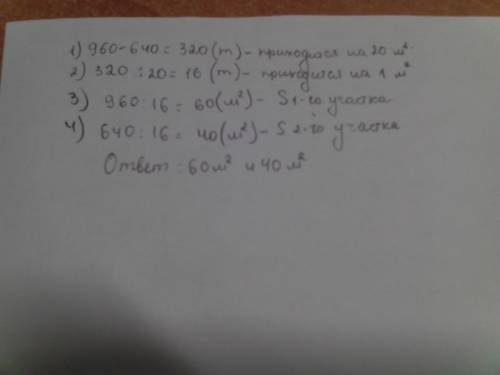 1) 960-640 = 320 (т) - приходится на 20 м².
2) 320 : 20 = 16 (т) - приходится на 1 м²
3) 960 : 16 = 60 (м²) - S 1-го участка
4) 640 : 16 = 40 (м²) - S 2-го участка
Ответ : 60 м² и 40 м²